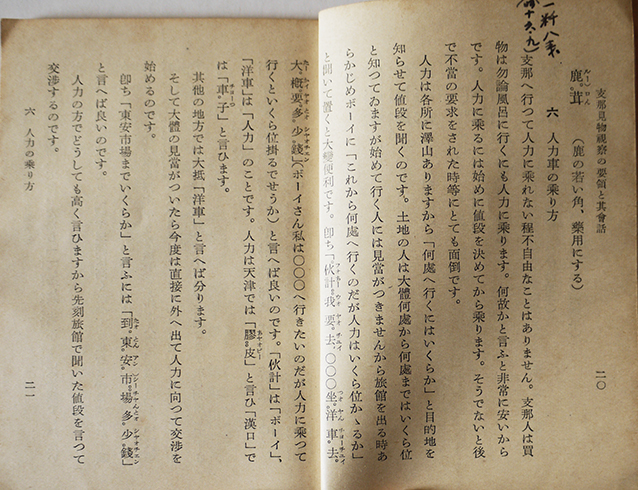 支那見物視察の要領と其會話
二〇
鹿茸(鹿の若い角、藥用にする)
六 人力車の乘り方
支那へ行つて人力に乘れない程不自由なことはありません。支那人は買
物は勿論風呂に行くにも人力に乘ります。何故かと言ふと非常に安いから
です。人力に乘るには始めに値段を決めてから乘ります。そうでないと後
で不當の要求をされた時等にとても面倒です。
人力は各所に澤山ありますから「何處へ行くにはいくらか」と目的地を
知らせて値段を聞くのです。土地の人は大體何處から何處まではいくら位
と知つてゐますが始めて行く人には見當がつきませんから旅館を出る時あ
らかじめボーイに「これから何處へ行くのだが人力はいくら位かゝるか」
と聞いて置くと大變便利です。卽ち「伙計我要去〇〇〇坐洋車去
大概要多少錢」(ボーイさん私は〇〇〇へ行きたいのだが人力に乘つて
行くといくら位掛るでせうか)と言へば良いのです。「伙計」は「ボーイ」、
「洋車」は「人力」のことです。人力は天津では「膠皮」と言ひ「漢口」で
は「車子」と言ひます。
其他の地方では大抵「洋車」と言へば分ります。
そして大體の見當がついたら今度は直接に外へ出て人力に向つて交渉を
始めるのです。
卽ち「東安市場までいくらか」と言ふには「到東安市場多少錢」
と言へば良いのです。
人力の方でどうしても高く言ひますから先刻旅館で聞いた値段を言つて
交渉するのです。
六 人力の乘り方
二一